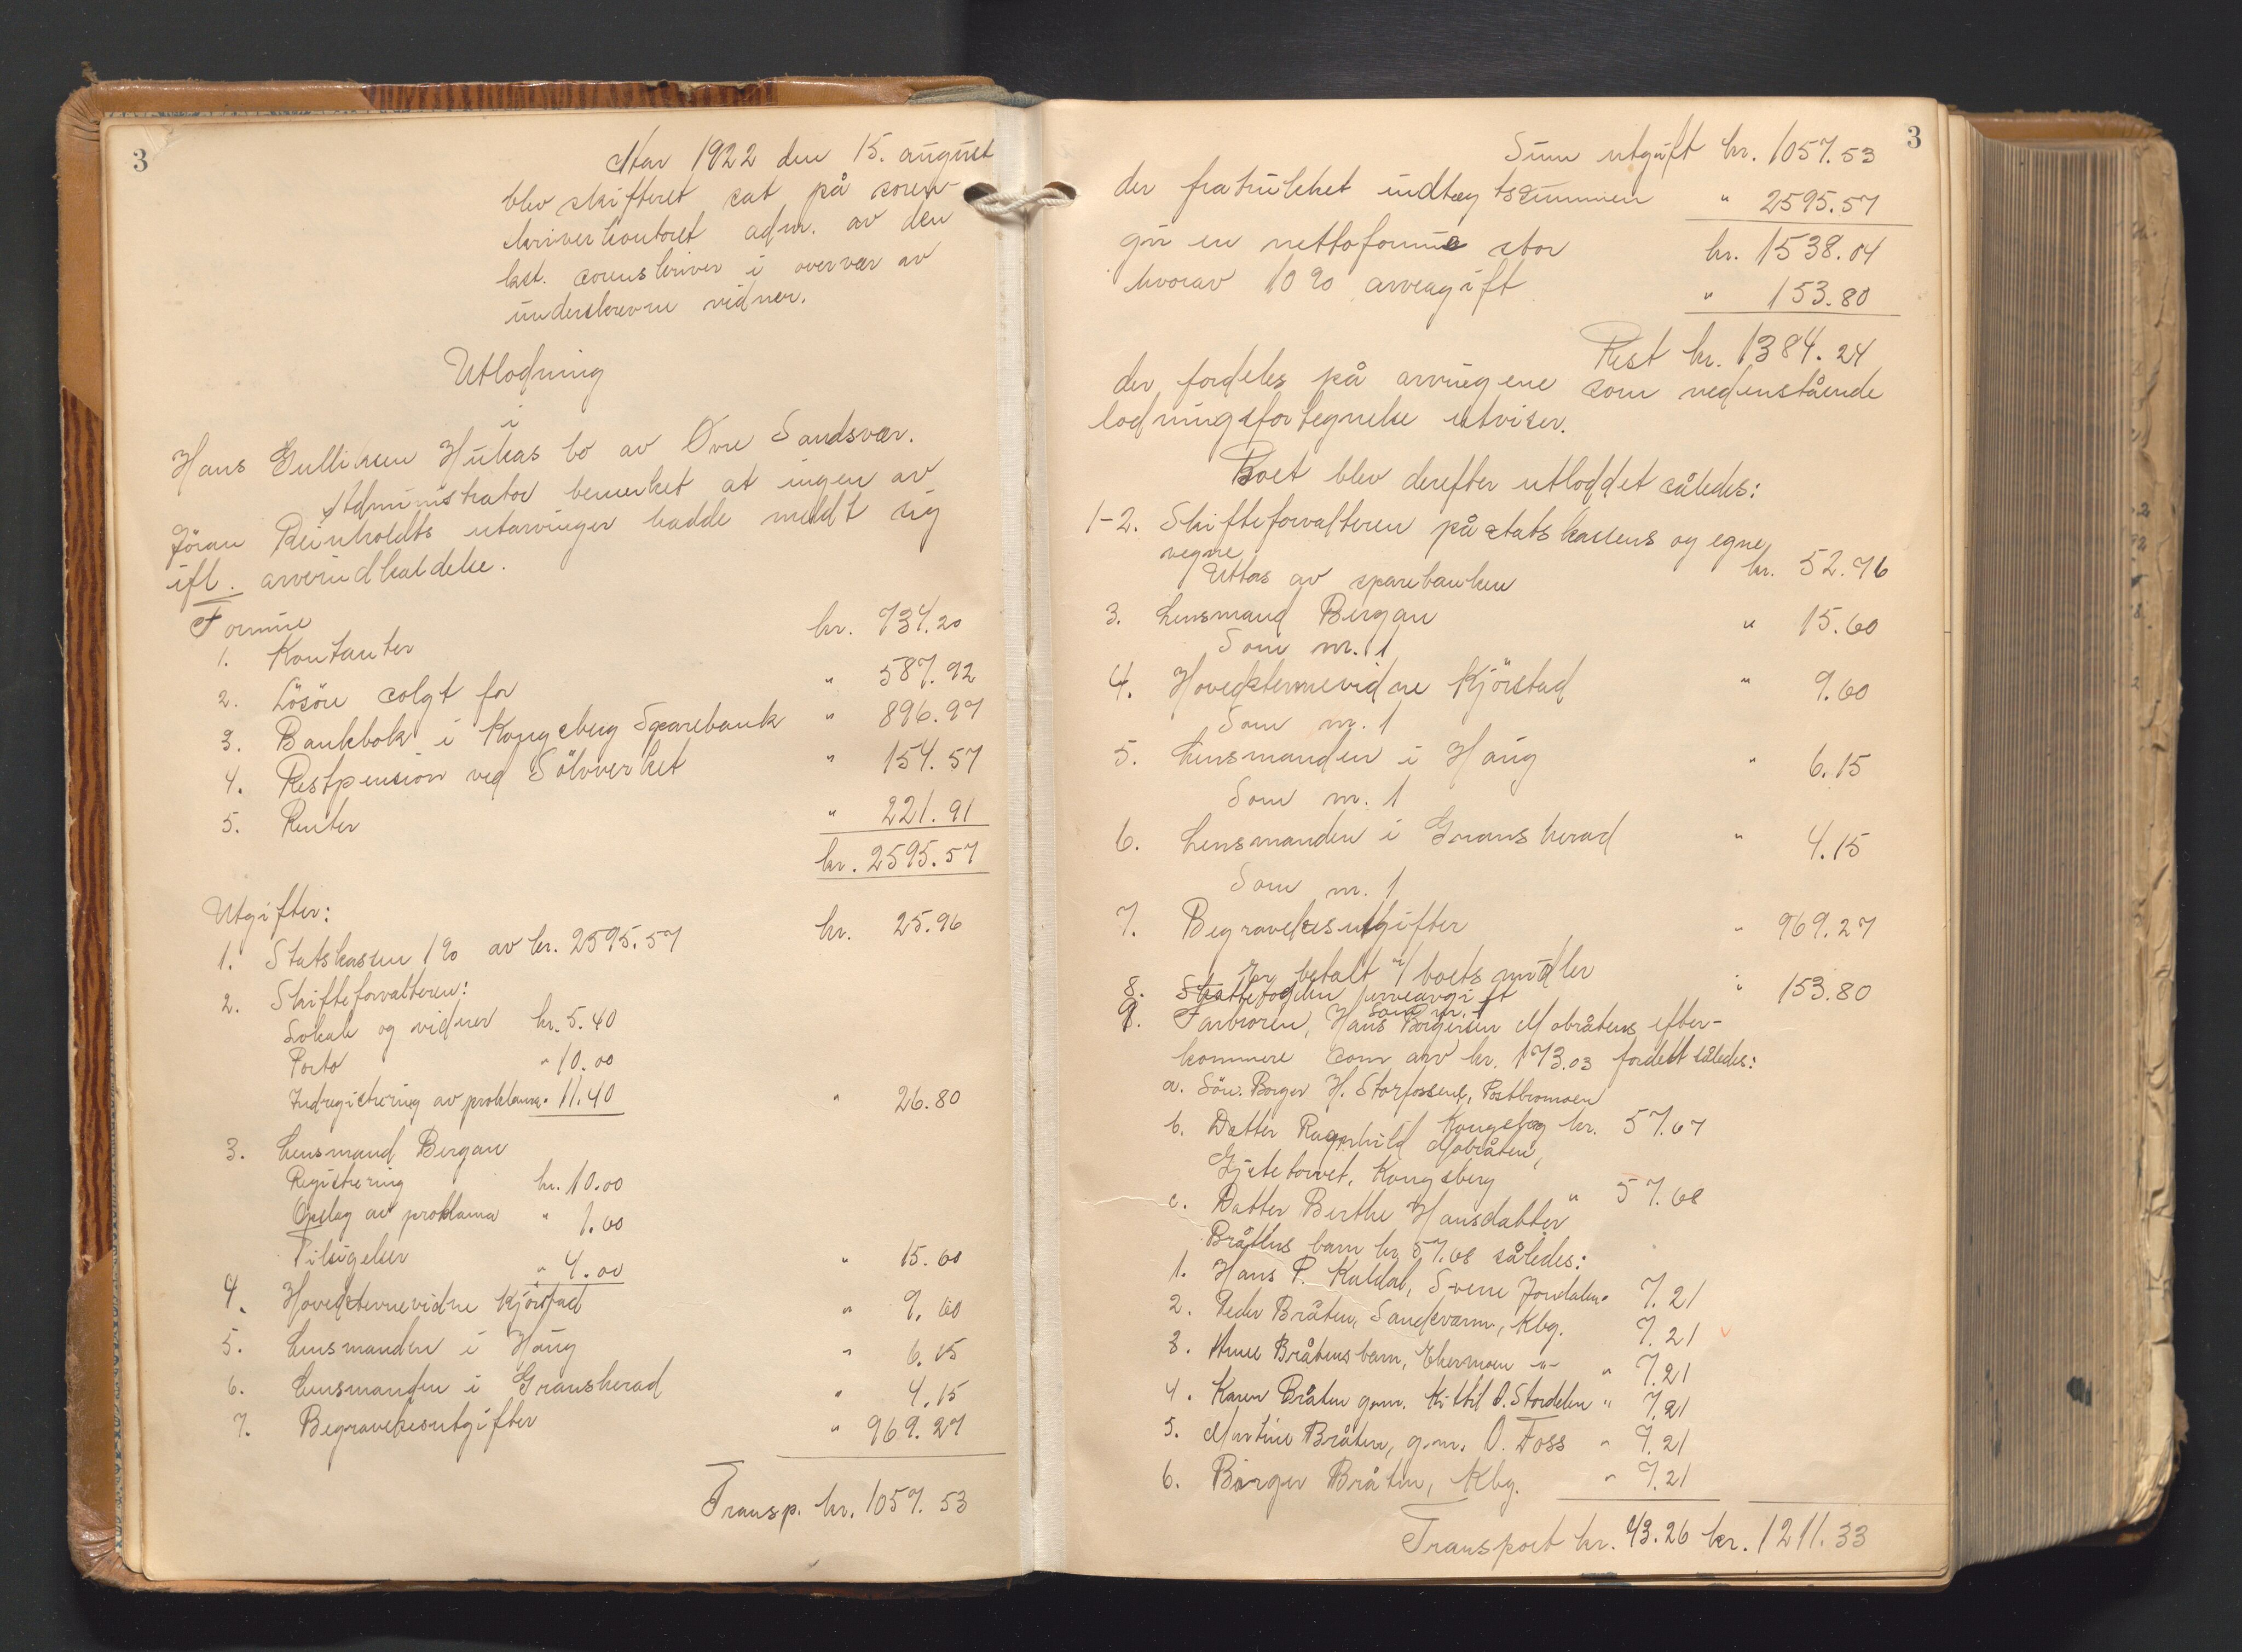 3
Aar 1922 den 15. august
blev skifteret sat på soren-
skriverkontoret adm. av den
kst. sorenskriver i overvær av
underskrevne vidner.
Utlodning
i
Hans Gulliksen Hukas bo av Øvre Sandsvær.
Administrator bemerket at ingen av
Jöran Reinholdts utarvinger hadde meldt sig
ifl. arveindkaldelse.
Formue
1. Kontanter kr. 734.20
2. Lösöre solgt for " 587.92
3. Bankbok i Kongsberg Sparebank " 896.97
4. Restpension ved Sölvverket " 154.57
5. Renter " 221.91
kr. 2595.57
Utgifter:
1. Statskassen 1% av kr. 2595.57 kr. 25.96
2. Skifteforvalteren:
Lokale og vidner kr. 5.40
Porto " 10.00
Indregistrering av proklama " 11.40 " 26.80
3. Lensmand Bergan
Registrering kr. 10.00
Opslag av proklama " 1.60
Tilsigelser " 4.00 " 15.60
4. Hovedstevnevidne Kjörstad " 9.60
5. Lensmanden i Haug " 6.15
6. Lensmanden i Gransherad " 4.15
7. Begravelsesutgifter " 969.27
Transp. kr. 1057.53
3
Sum utgift kr. 1057.53
der fratrukket indtægtssummen " 2595.57
gir en nettoformue stor kr. 1538.04
hvorav 10% arveagift " 153.80
Rest kr. 1384.24
der fordeles på arvingene som nedenstående
lodningsfortegnelse utviser.
Boet blev derefter utloddet således:
1-2. Skifteforvalteren på statskassens og egne
vegne kr. 52.76
Uttas av sparebanken
3. Lensmand Bergan " 15.60
Som nr. 1
4. Hovedstevnevidne Kjörstad " 9.60
Som nr. 1
5. Lensmanden i Haug " 6.15
Som nr. 1
6. Lensmanden i Gransherad " 4.15
Som nr. 1
7. Begravelsesutgifter " 969.27
Er betalt av boets midler
8. Skattefogden, arveavgift " 153.80
Som nr. 1
9. Farbroren, Hans Borgersen Mobråtens efter-
kommere som arv kr. 173.03 fordelt således:
a. Sön. Borger H. Storfossene, Postbromoen
Kongsberg kr. 57.67
b. Datter Ragnhild Mobråten,
Gjetetorvet, Kongsberg " 57.68
c. Datter Berthe Hansdatter
Bråtens barn kr. 57.68 således:
1. Hans P. Kaldal, S-vene Jondalen " 7.21
2. Peder Bråten, Sandsværm, Kbg. 7.21
3. Anne Bråtens barn, Ekermoen -"- " 7.21
4. Karen Bråten gm. Kittil O. Stordalen " 7.21
5. Martine Bråten, g.m. O. Foss " 7.21
6. Börger Bråten, Kbg. " 7.21
Transport kr. 43.26 kr. 1211.33